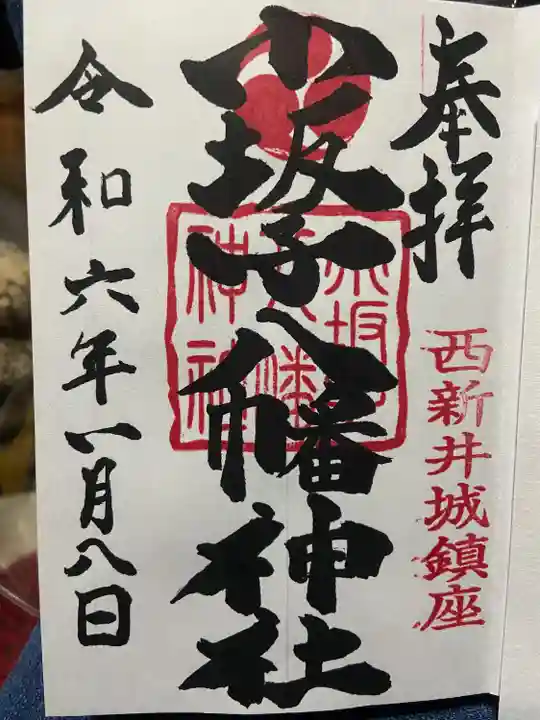 奉拝
西新井城鎮座
小坂子八幡神社
小坂子
八幡
神社
令和六年一月八日